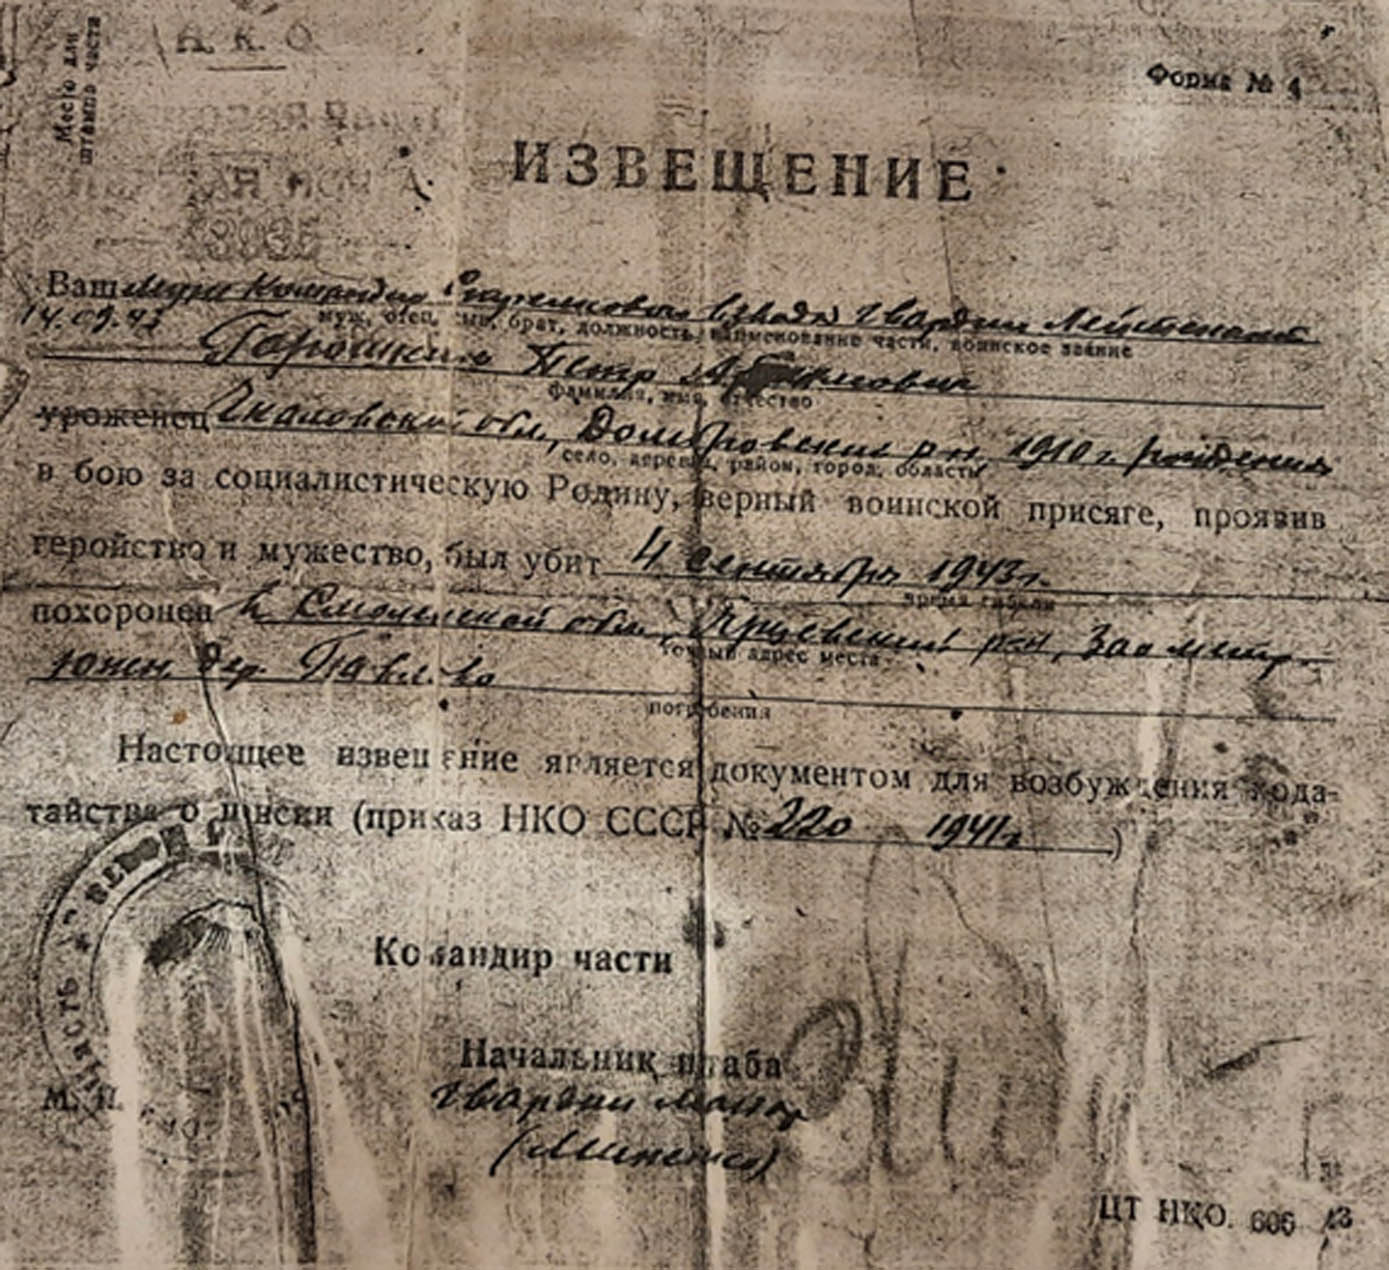 Место для
штампа части
Форма № 4
ИЗВЕЩЕНИЕ
Ваш муж командир взвода гвардии лейтенант
14.09.43
муж, отец, сын, брат, должность, наименование части, воинское звание
Петр
фамилия, имя, отчество
уроженец Чкаловской обл., Домбровский р-н, 1910 г. рождения
село, деревня, район, город, область
в бою за социалистическую Родину, верный воинской присяге, проявив
геройство и мужество, был убит 4 сентября 1943 г.
время гибели
похоронен в Смоленской обл., Ярцевский р-н, 300 метр.
точный адрес места
южн. дер. Павлово
погребения
Настоящее извещение является документом для возбуждения хода-
тайства о пенсии (приказ НКО СССР № 220 1941 г.)
Командир части
Начальник штаба
гвардии майор
М. П.
ЦТ НКО. 606 43